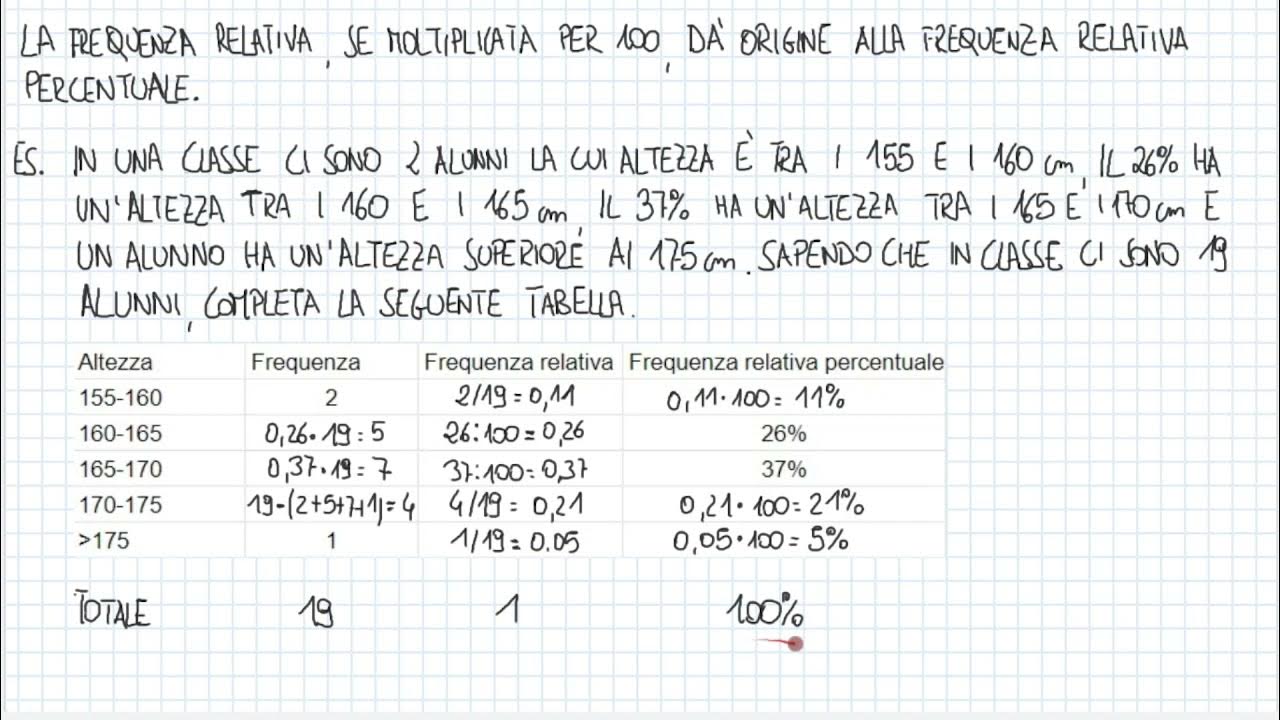 LA FREQUENZA RELATIVA, SE MOLTIPLICATA PER 100, DA' ORIGINE ALLA FREQUENZA RELATIVA
PERCENTUALE.
ES. IN UNA CLASSE CI SONO 2 ALUNNI LA CUI ALTEZZA È TRA I 155 E I 160 cm, IL 26% HA
UN'ALTEZZA TRA I 160 E I 165 cm, IL 37% HA UN'ALTEZZA TRA I 165 E I 170 cm E
UN ALUNNO HA UN'ALTEZZA SUPERIORE AI 175 cm. SAPENDO CHE IN CLASSE CI SONO 19
ALUNNI, COMPLETA LA SEGUENTE TABELLA.
Altezza Frequenza Frequenza relativa Frequenza relativa percentuale
155-160 2 2/19 = 0,11 0,11·100 = 11%
160-165 0,26·19 = 5 26:100 = 0,26 26%
165-170 0,37·19 = 7 37:100 = 0,37 37%
170-175 19-(2+5+7+1) = 4 4/19 = 0,21 0,21·100 = 21%
>175 1 1/19 = 0.05 0,05·100 = 5%
TOTALE 19 1 100%